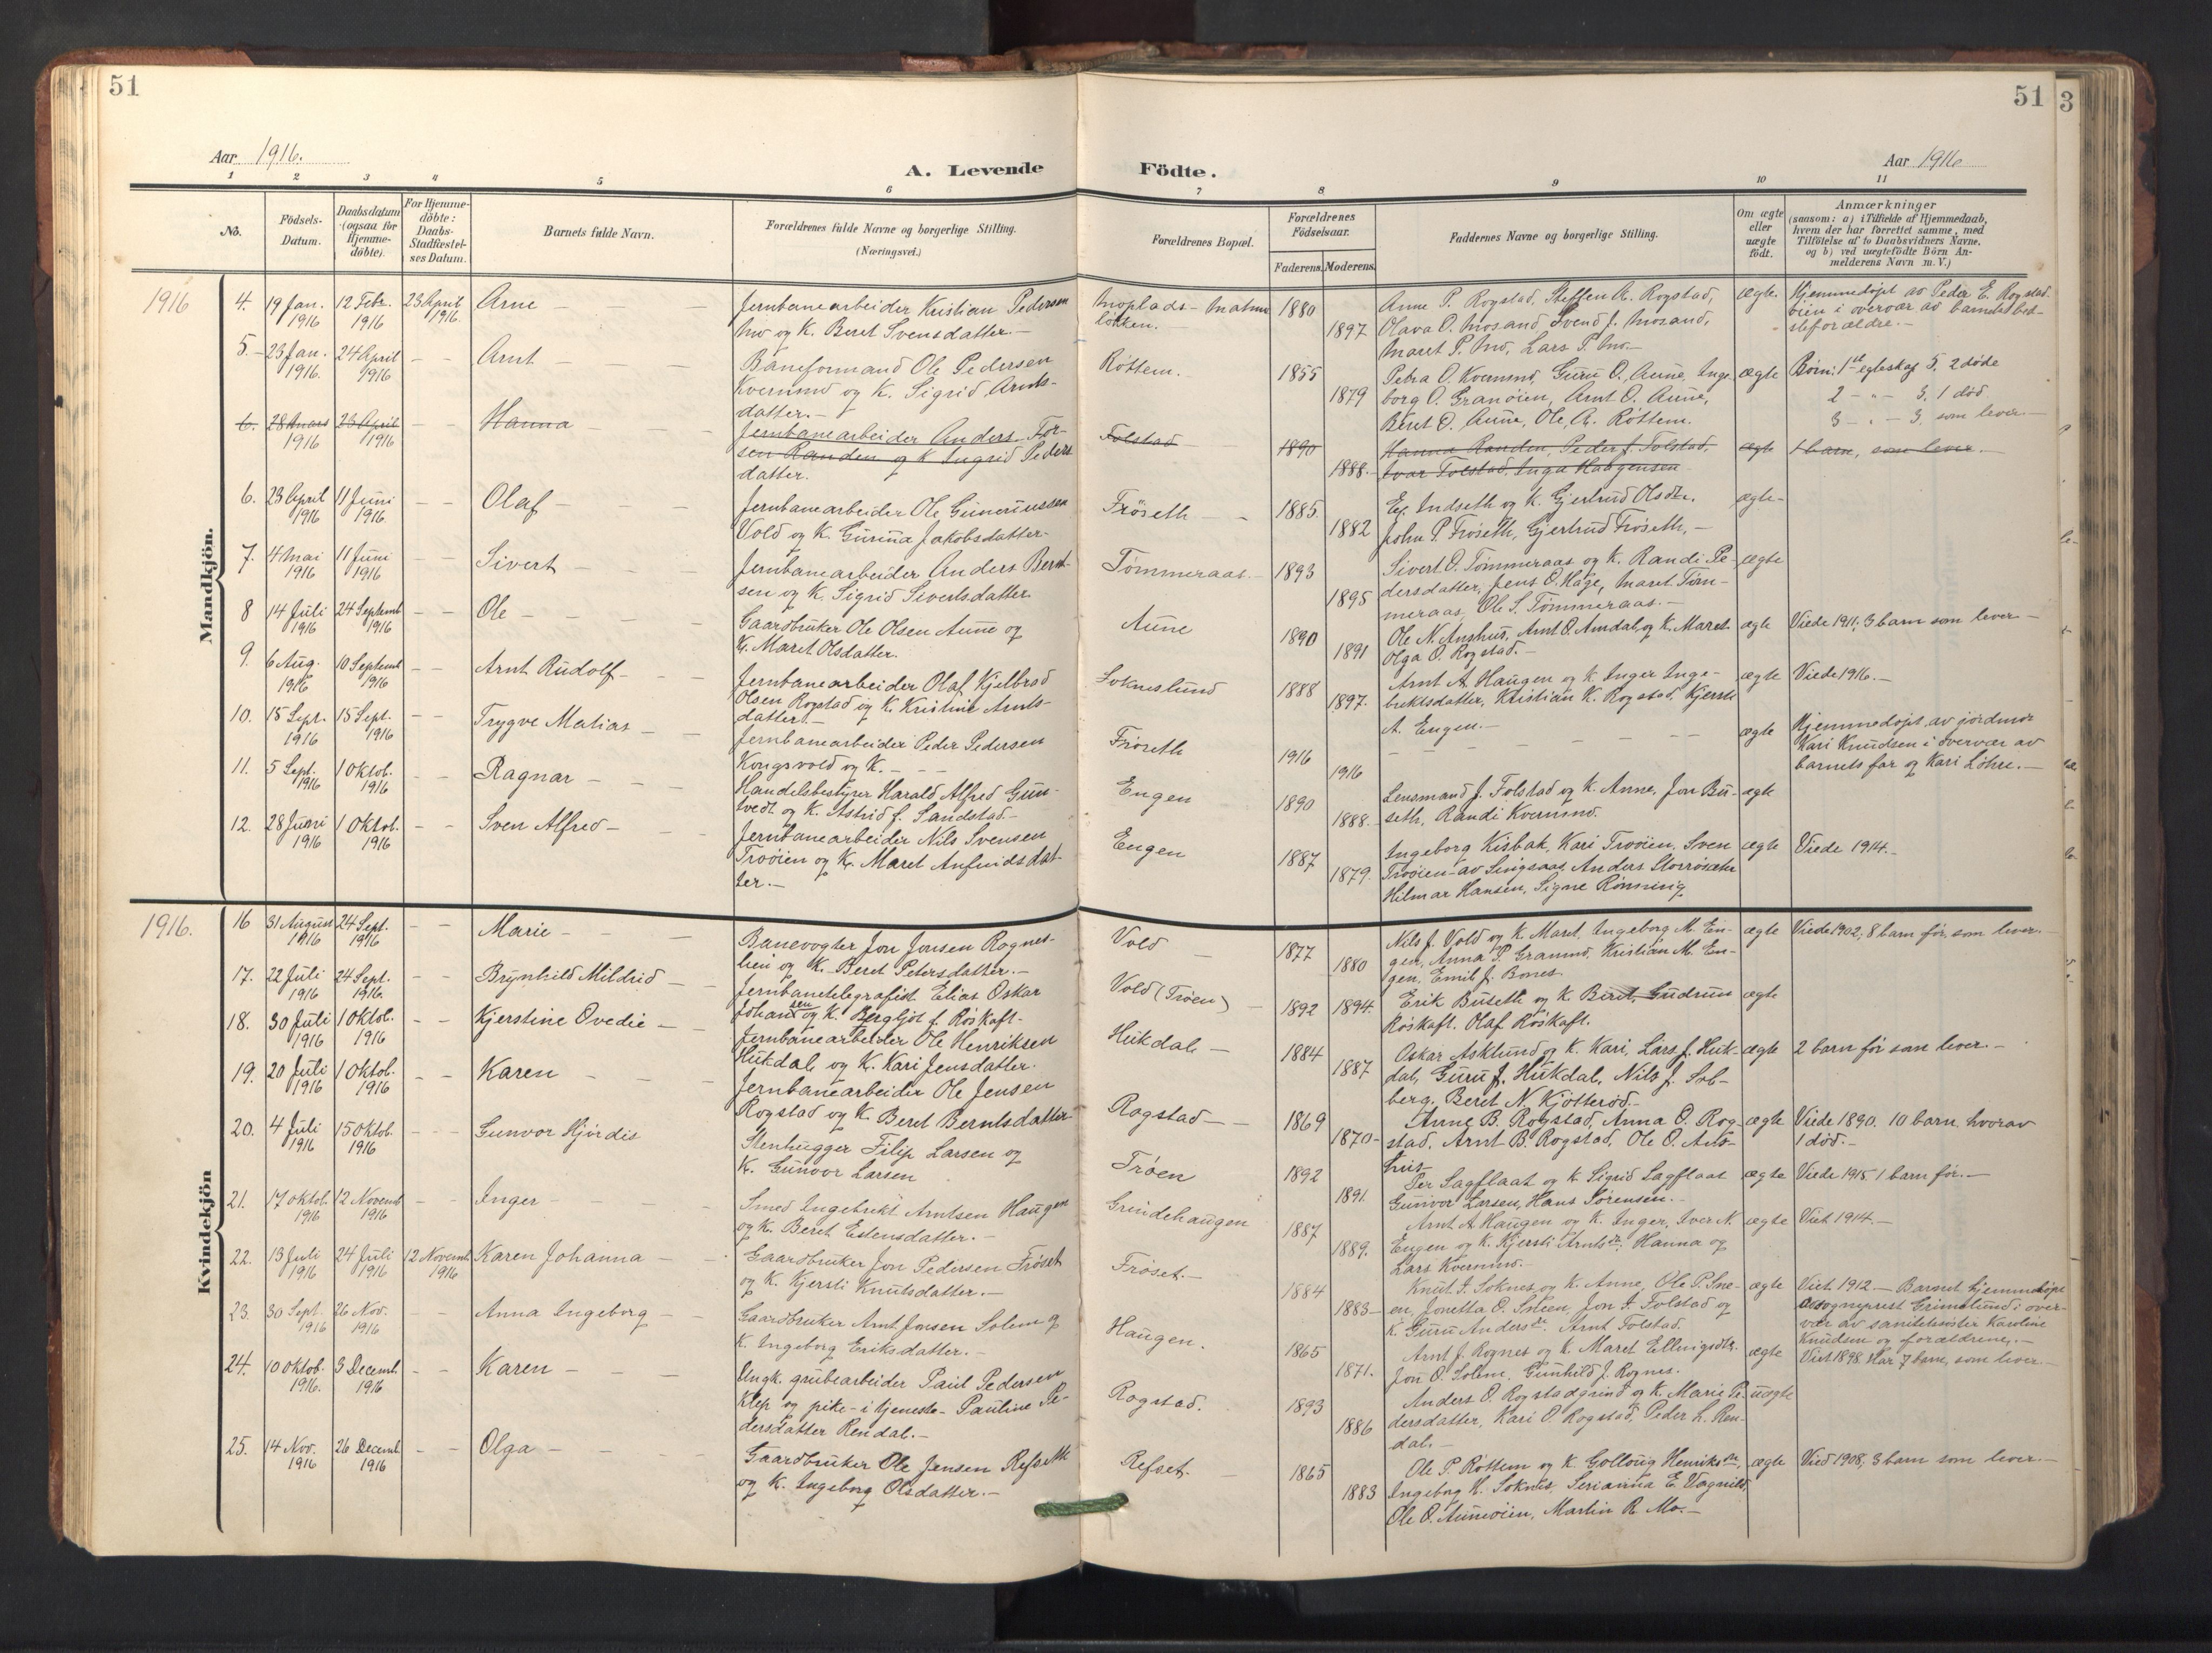 51
51
3
Aar 1916.
A. Levende Födte.
Aar 1916
1 2 3 4 5 6 7 8 9 10 11
No.
Födsels-Datum.
Daabsdatum (ogsaa for Hjemme-döbte).
For Hjemme-döbte: Daabs-Stadfæstel-ses Datum.
Barnets fulde Navn.
Forældrenes fulde Navne og borgerlige Stilling. (Næringsvei.)
Forældrenes Bopæl.
Forældrenes Födselsaar.
Faderens. Moderens.
Faddernes Navne og borgerlige Stilling.
Om ægte eller uægte födt.
Anmærkninger
(saasom: a) i Tilfælde af Hjemmedaab, hvem der har forrettet samme, med Tilföielse af to Daabsvidners Navne, og b) ved uægtefödte Börn Anmelderens Navn m. V.)
1916
Mandkjön.
4. 19 Jan. 1916 12 Febr. 1916 23 April 1916. Arne
Jernbanearbeider Kristian Pedersen
Mo og K. Beret Svensdatter.
Moplads-
løkken.
1880 1897
Anne P. Rogstad, Steffen A. Rogstad,
Olava O. Mosand, Svend J. Mosand,
Maret P. Mo, Lars P. Mo.
ægte.
Hjemmedøpt av Peder E. Rogstad-
øien i overvær av barnets bed-
steforældre.
5. 23 Jan. 1916. 24 April 1916 Arnt
Baneformand Ole Pedersen
Kvernmo og K. Sigrid Arnts-
datter.
Røttem.
1855 1879
Petra O. Kvernmo, Guru O. Aune, Inge-
borg O. Granøien, Arnt O. Aune,
Beret O. Aune, Ole A. Røttem.
ægte
Børn: 1ste egteskap 5, 2 døde
2 - " - 3, 1 død
3 - " - 3, som lever.
6. 28 Mars 1916 23 April 1916 Hanna
Jernbanearbeider Anders Tor-
sen Randen og K Ingrid Peders
datter.
Folstad
1890 1888.
Hanna Randen, Peder J. Folstad,
Ivar Folstad, Inga
ægte
1 barn, som lever.
6. 23 April 1916 11 Juni 1916. Olaf
Jernbanearbeider Ole Gunerussen
Vold og K. Gurina Jakobsdatter.
Frøseth
1885. 1882
Ey. Indseth og K. Gjertrud Olsdtr.
John P. Frøseth, Gjertrud Frøseth,
ægte
7. 4 Mai 1916 11 Juni 1916 Sivert
Jernbanearbeider Anders Bernt-
sen og K. Sigrid Sivertsdatter
Tømmeraas.
1893 1895
Sivert O. Tømmeraas og K. Randi Pe-
dersdatter, Jens O. Hage, Maret Tøm-
meraas, Ole S. Tømmeraas.
ægte
8 14 Juli 1916 24 Septemb 1916 Ole
Gaardbruker Ole Olsen Aune og
K. Maret Olsdatter.
Aune
1890 1891
Ole N. Aushus, Arnt O. Amdal, og K. Maret
Olga O. Rogstad.
ægte
Viede 1911, 3 barn som lever
9. 6 Aug. 1916 10 Septemb 1916 Arnt Rudolf
Jernbanearbeider Olaf Kjelbrad
Olsen Rogstad og K. Kristine Arnts-
datter.
Sokneslund
1888 1897.
Arnt A Haugen og K. Inger Inge-
briktsdatter, Kristian K. Rogstad, Kjersti
A. Engen.
ægte
Viede 1916.
10. 15 Sept. 1916 15 Sept. 1916 Trygve Matias
Jernbanearbeider Peder Pedersen
Kongsvold og K.
Frøseth
1916 1916
ægte
Hjemmedøpt av jordmor
Kari Knudsen i overvær av
barnets far og Kari Löhre.
11. 5 Sept. 1916 1 Oktob. 1916 Ragnar
Handelsbestyrer Harald Alfred Gun-
tvedt og K. Astrid f. Sandstad.
Engen
1890 1888.
Lensmand J. Folstad og K. Anne, Jon Bu-
seth, Randi Kvernmo.
ægte
12. 28 Juni 1916 1 Oktob. 1916 Sven Alfred
Jernbanearbeider Nils Svensen
Trøoien og K. Maret Anfindsdat-
ter.
Engen
1887 1879.
Ingeborg Kisbak, Kari Trøoien, Sven
Trøoien av Singsaas, Anders Storrøsæter
Hilmar Hansen, Signe Rønning
ægte
Viede 1914.
1916.
Kvindekjön
16 31 August 1916 24 Sept. 1916 Marie
Banevogter Jon Jonsen Rognes-
lien og K. Beret Petersdatter.
Vold
1877 1880
Nils J. Vold og K. Maret, Ingeborg M. En-
gen, Anna P. Granmo, Kristian M. En-
gen, Emil J. Bones
ægte
Viede 1902, 8 barn før, som lever.
17. 22 Juli 1916 24 Sept. 1916. Brynhild Mildrid
Jernbanetelegrafist Elias Oskar
Johansen og K. Bergljot f. Røskaft.
Vold (Trøen)
1892 1894.
Erik Buseth og K. Beret, Gudrun
Røskaft. Olaf Røskaft.
ægte
18. 30 Juli 1916 1 Oktob. 1916 Kjerstine Ovedie
Jernbanearbeider Ole Henriksen
Hukdal og K. Kari Jensdatter.
Hukdal
1884 1887
Oskar Asklund og K. Kari, Lars J. Huk-
dal, Guru J. Hukdal, Nils J. Sol-
berg, Beret N. Kjøtterød.
ægte
2 barn før som lever.
19. 20 Juli 1916 1 Oktob. 1916 Karen
Jernbanearbeider Ole Jensen
Rogstad og K. Beret Berntsdatter
Rogstad
1869 1870
Anne B. Rogstad, Anna O. Rog-
stad, Arnt B. Rogstad, Ole O. Aus-
hus
ægte
Viede 1890. 10 barn, hvorav
1 død.
20. 4 Juli 1916 15 Oktob. 1916 Gunvor Hjørdis
Stenhugger Filip Larsen og
K. Gunvor Larsen
Trøen
1892 1891.
Per Sagflaat og K. Sigrid Sagflaat
Gunvor Larsen, Hans Sørensen.
ægte
Viede 1915. 1 barn før.
21. 17 Oktob. 1916 12 Novemb 1916 Inger
Smed Ingebrikt Arntsen Haugen
og K. Beret Estensdatter.
Grindehaugen
1887 1889.
Arnt A Haugen og K. Inger, Iver N.
Engen og K. Kjersti Arntsdtr, Hanna og
Lars Kvernmo.
ægte
Viet 1914.
22. 13 Juli 1916 24 Juli 1916 12 Novemb. 1916 Karen Johanna
Gaardbruker Jon Pedersen Frøset
og K. Kjersti Knutsdatter.
Frøset.
1884 1883
Knut I. Soknes og K. Anne, Ole P. Sne-
en, Jonetta O. Solien, Jon I. Folstad og
K. Guru Andersdtr. Arnt Folstad.
ægte
Viet 1912. Barnet hjemmedøpt
av sogneprest Grimelund i over-
vær av sanitetssøster Karoline
Knudsen og forældrene.
23. 30 Sept. 1916 26 Nov. 1916 Anna Ingeborg
Gaardbruker Arnt Jonsen Solem og
K. Ingeborg Eriksdatter.
Haugen.
1865 1871.
Arnt J. Rognes og K. Maret Ellingsdtr.
Jon O. Solem, Gunhild J. Rognes.
ægte
Viet 1898. Har 7 barn, som lever
24. 10 Oktob. 1916. 3 Decemb. 1916 Karen
Ungk. grubearbeider Paul Pedersen
Klep og pike i tjeneste Pauline Pe-
dersdatter Rendal.
Rogstad.
1893 1886
Anders O. Rogstadgrind og K. Marie Pe-
dersdatter, Kari O. Rogstad, Peder L. Ren-
dal.
uægte
25. 14 Nov. 1916 26 Decemb. 1916 Olga
Gaardbruker Ole Jensen Refseth
og K. Ingeborg Olsdatter.
Refset.
1865 1883
Ole P. Røttem og K. Golloug Henriksdtr,
Ingeborg H. Soknes, Serianna E. Vagnild,
Ole O. Aunøien, Martin R. Mo.
ægte
Vied 1908, 3 barn som lever.